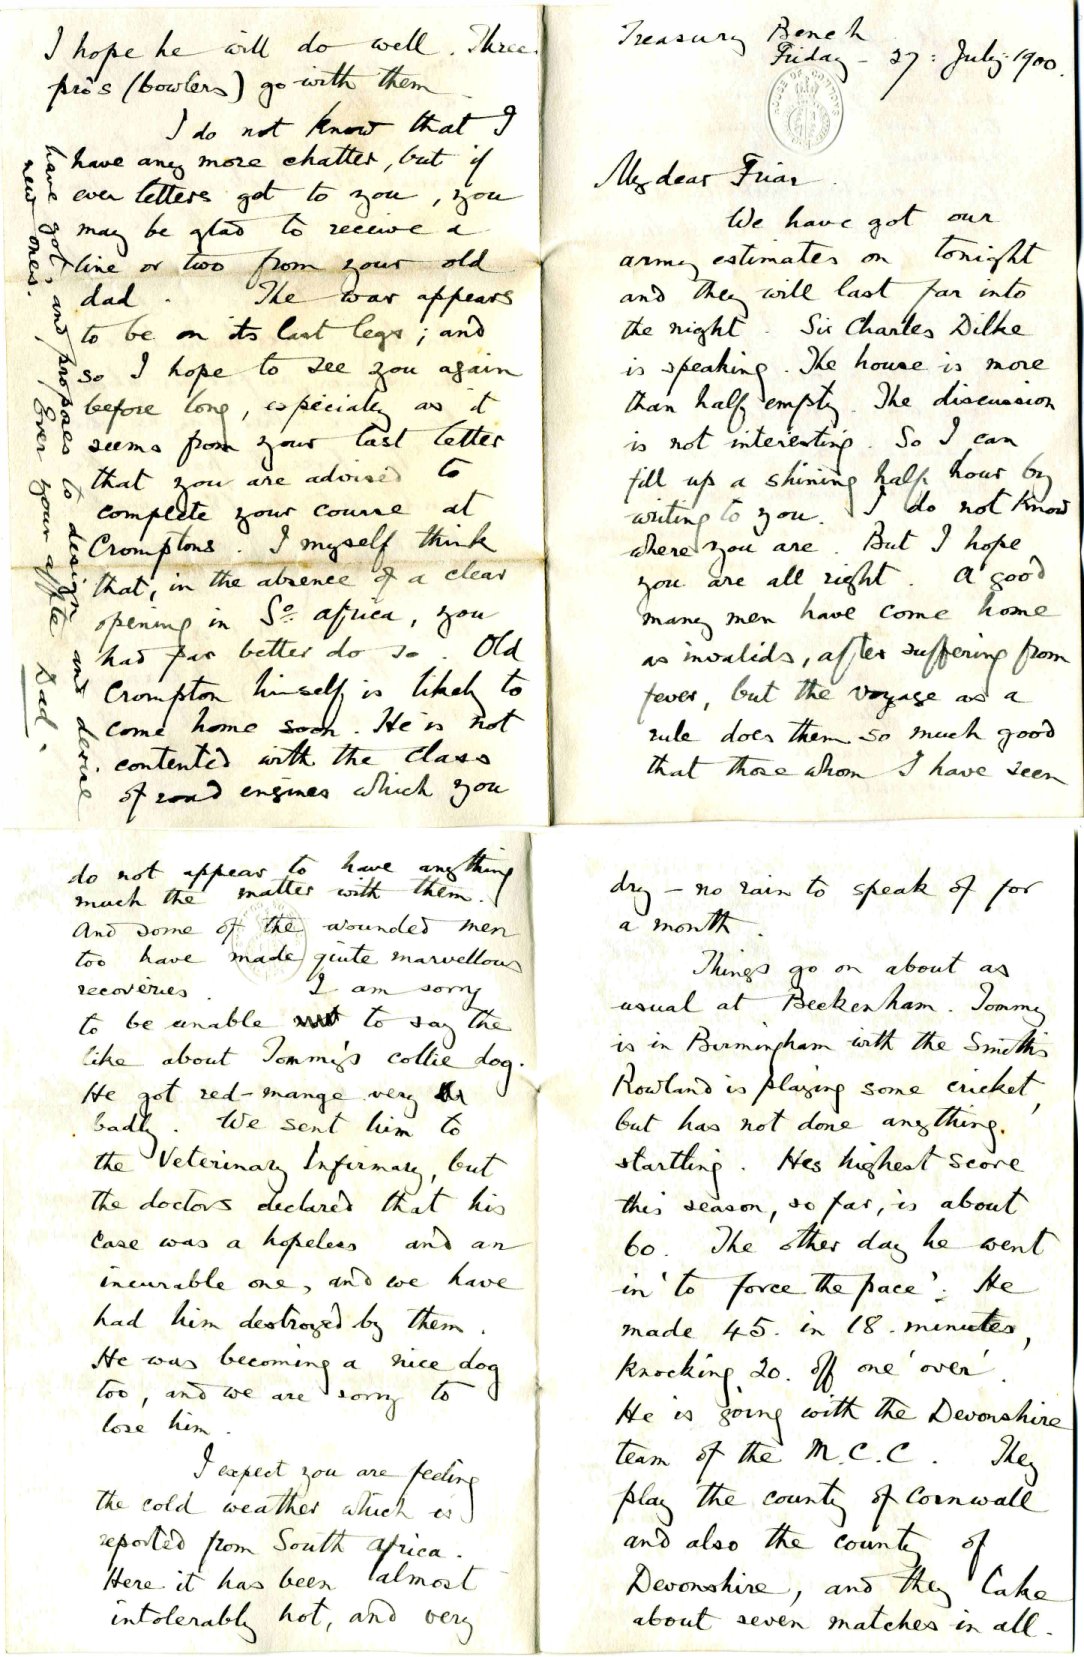 Treasury Bench
Friday - 27: July: 1900.
My dear Friar.
We have got our
army estimates on tonight
and they will last far into
the night. Sir Charles Dilke
is speaking. The house is more
than half empty. The discussion
is not interesting. So I can
fill up a shining half hour by
writing to you. I do not know
where you are. But I hope
you are all right. A good
many men have come home
as invalids, after suffering from
fever, but the voyage as a
rule does them so much good
that those whom I have seen
do not appear to have anything
much the matter with them.
And some of the wounded men
too have made quite marvellous
recoveries. I am sorry
to be unable to say the
like about Tommy's collie dog.
He got red-mange very
badly. We sent him to
the Veterinary Infirmary, but
the doctors declared that his
case was a hopeless and an
incurable one, and we have
had him destroyed by them.
He was becoming a nice dog
too, and we are sorry to
lose him.
I expect you are feeling
the cold weather which is
reported from South Africa.
Here it has been almost
intolerably hot, and very
dry - no rain to speak of for
a month.
Things go on about as
usual at Beckenham. Tommy
is in Birmingham with the Smiths
Rowland is playing some cricket,
but has not done anything.
startling. His highest score
this season, so far, is about
60. The other day he went
in 'to force the pace'. He
made 45. in 18. minutes,
knocking 20. off one 'over'.
He is going with the Devonshire
team of the M.C.C. They
play the county of Cornwall
and also the county of
Devonshire, and they take
about seven matches in all.
I hope he will do well. Three
pro's (bowlers) go with them
I do not know that I
have any more chatter, but if
ever letters get to you, you
may be glad to receive a
line or two from your old
dad. The war appears
to be on its last legs; and
so I hope to see you again
before long, especially as it
seems from your last letter
that you are advised to
complete your course at
Cromptons. I myself think
that, in the absence of a clear
opening in So. Africa, you
had far better do so. Old
Crompton himself is likely to
come home soon. He is not
contented with the class
of road engines which you
have got, and proposes to design and devise
new ones. Ever your affte Dad.